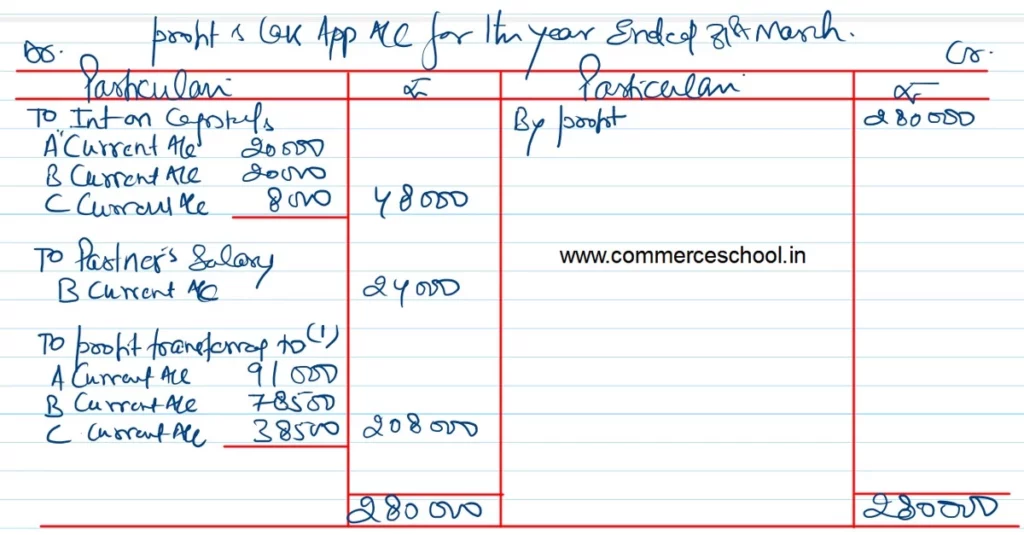 Profit & Loss App A/c for the year Ended 31st March.
Dr. Cr.
Particulars ₹ Particulars ₹
To Int on Capitals By profit 280000
A Current A/c 20000
B Current A/c 20000
C Current A/c 8000 48000
To Partner's Salary
www.commerceschool.in
B Current A/c 24000
To profit transferred to (1)
A Current A/c 91000
B Current A/c 78500
C Current A/c 38500 208000
280000 280000